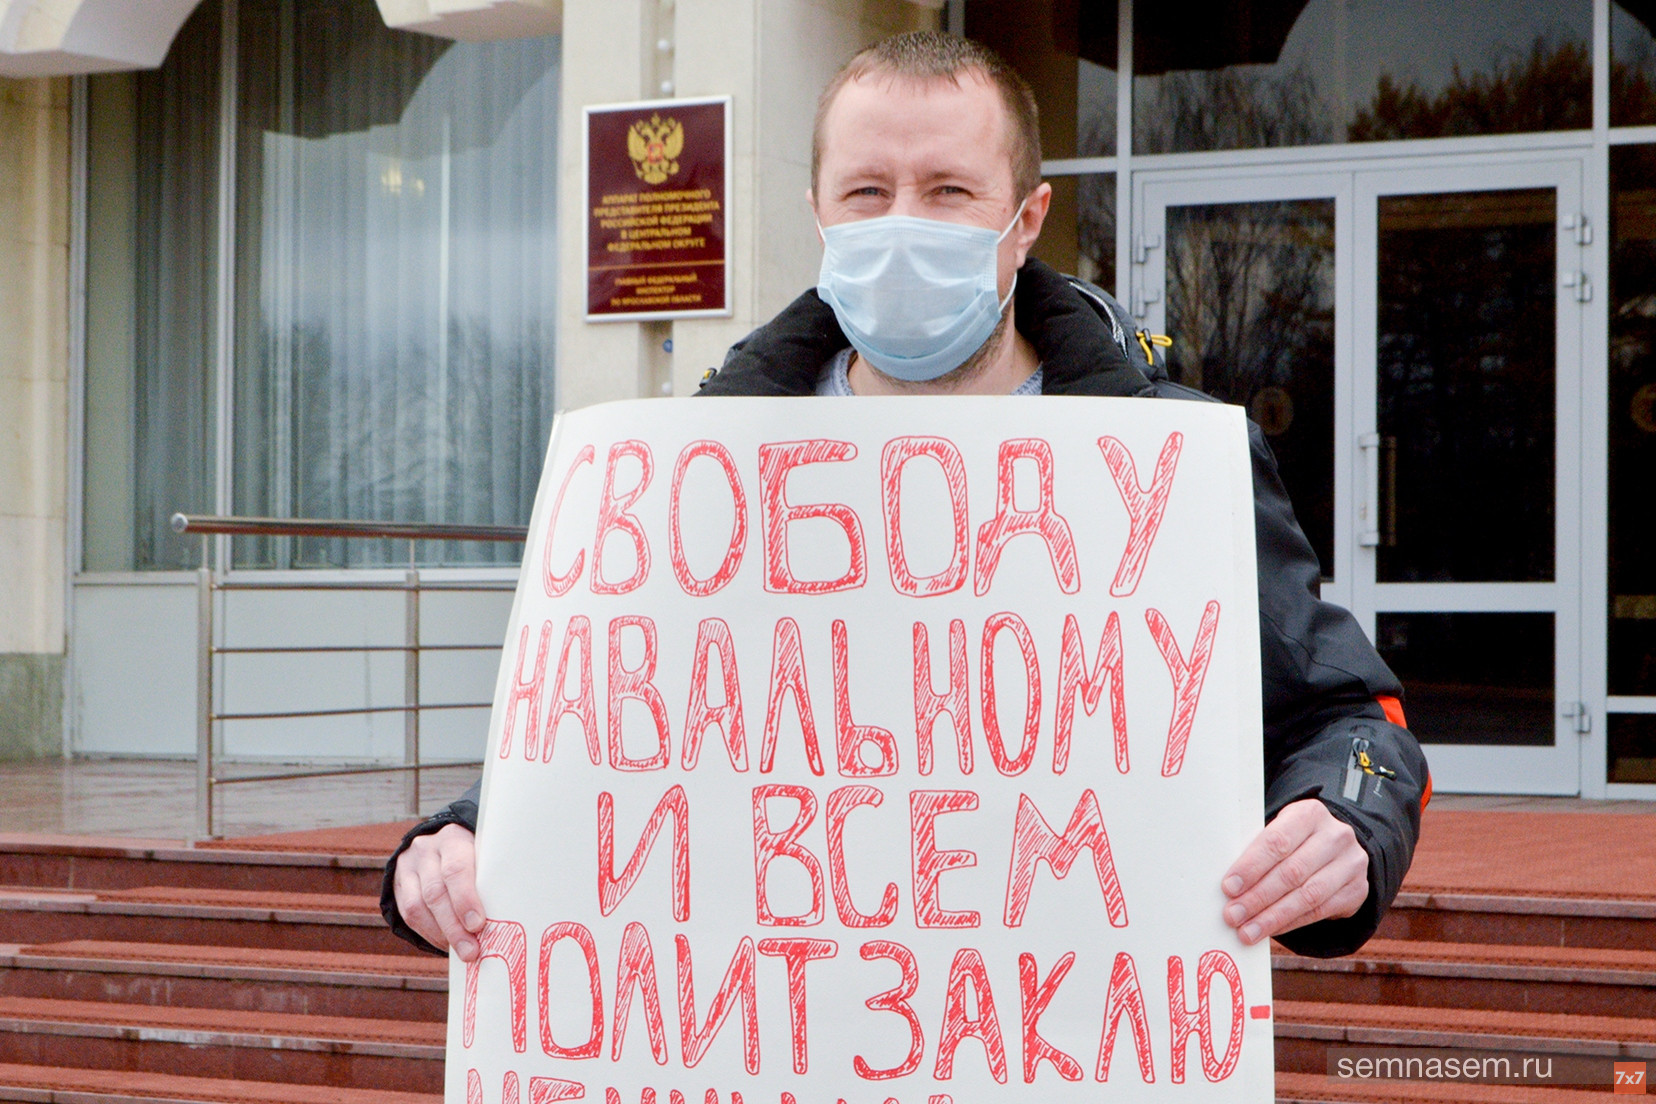 АППАРАТ ПОЛНОМОЧНОГО
ПРЕДСТАВИТЕЛЯ ПРЕЗИДЕНТА
РОССИЙСКОЙ ФЕДЕРАЦИИ
В ЦЕНТРАЛЬНОМ
ФЕДЕРАЛЬНОМ ОКРУГЕ
ГЛАВНЫЙ ФЕДЕРАЛЬНЫЙ
ИНСПЕКТОР
ПО ЯРОСЛАВСКОЙ ОБЛАСТИ
СВОБОДУ
НАВАЛЬНОМУ
И ВСЕМ
ПОЛИТЗАКЛЮ-
semnasem.ru
7x7